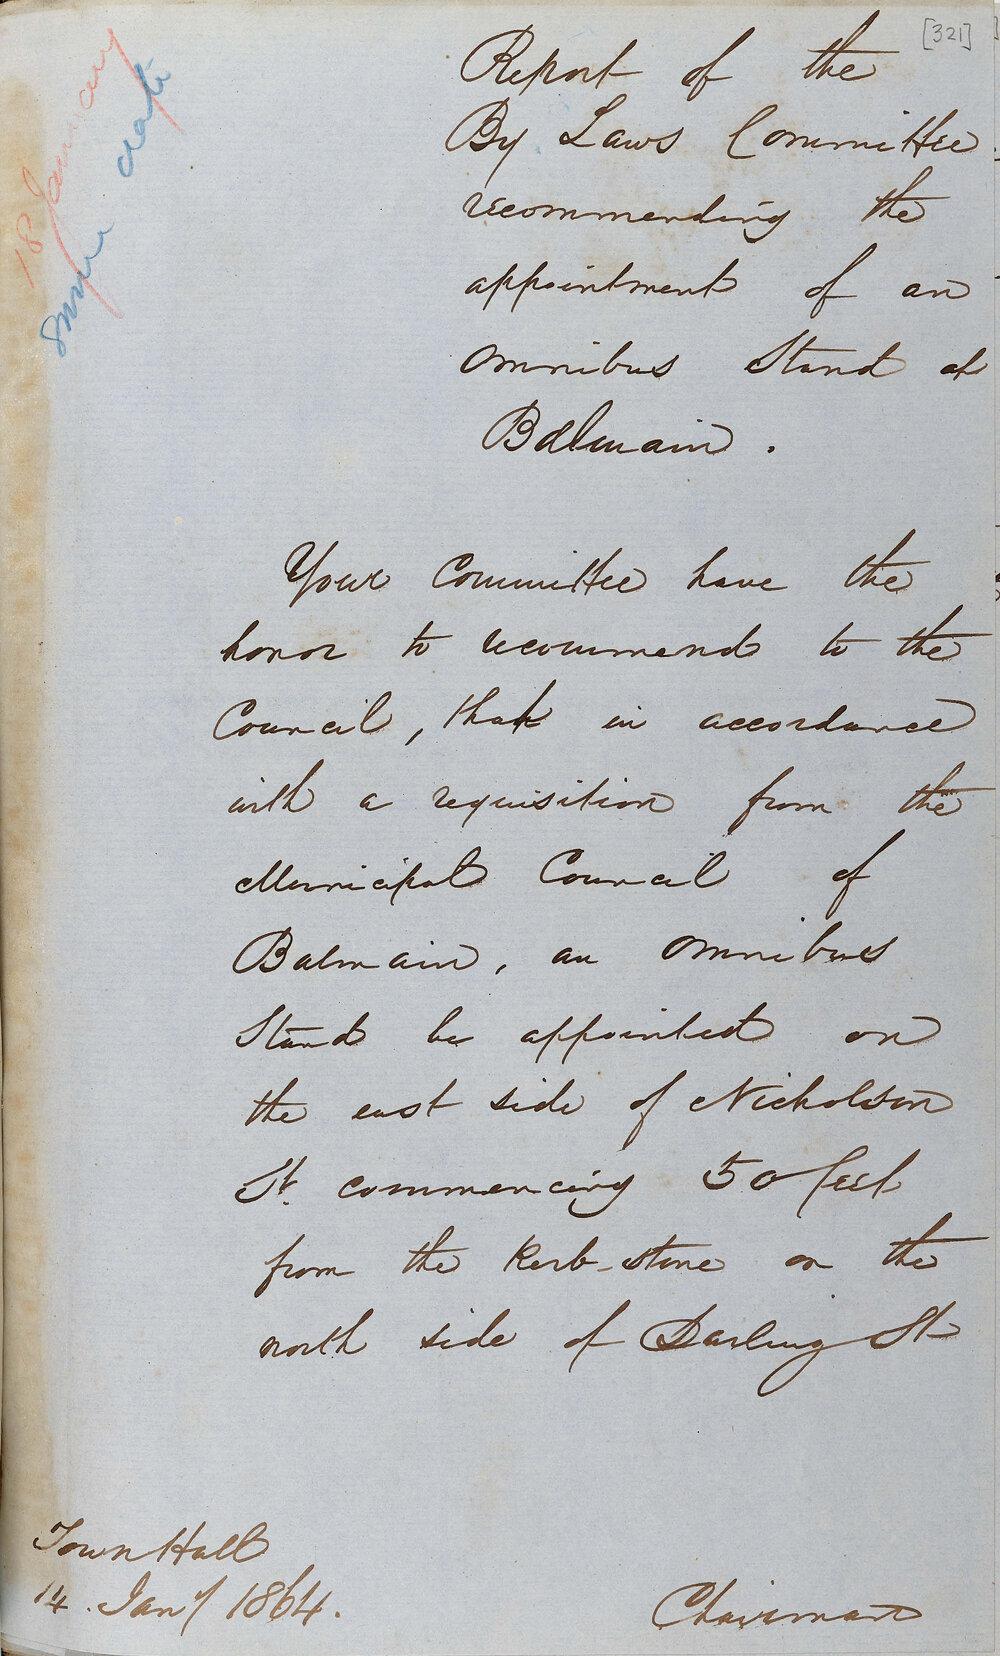 [321]
18 January
same date
Report of the
By Laws Committee
recommending the
appointment of an
Omnibus Stand at
Balmain.
Your Committee have the
honor to recommend to the
Council, that in accordance
with a requisition from the
Municipal Council of
Balmain, an Omnibus
Stand be appointed on
the east side of Nicholson
St. commencing 50 feet
from the Kerb-stone on the
north side of Darling St
Town Hall
14. Jany 1864.
Chairman